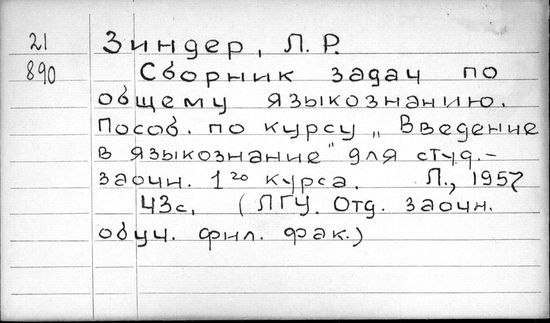 21 Зиндер, Л. Р.
890 Сборник задач по
общему языкознанию.
Пособ. по курсу „Введение
в языкознание" для студ.-
заочн. 1го курса. Л., 1957
43с. (ЛГУ. Отд. заочн.
обуч. фил. фак.)